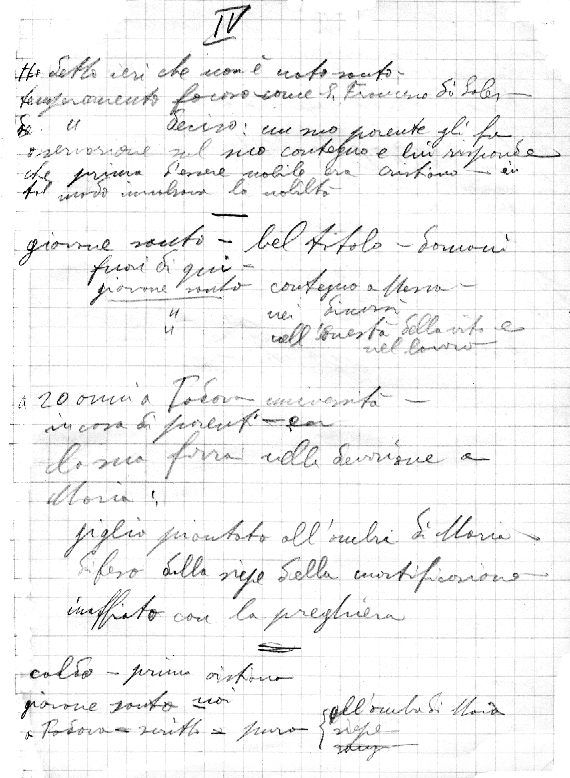 IV
Ho detto ieri che non è nato santo -
temperamento focoso come S. Francesco di Sales -
" deciso: un suo parente gli fa
osservazione sul suo contegno e lui risponde
che prima d'essere nobile era cristiano - in
tal modo la nobiltà
giovane santo - bel titolo - domani
fuori di qui -
giovane santo contegno a Messa -
" nei discorsi
" nell'onestà della vita e
nel lavoro
a 20 anni a Padova università -
in casa di parenti -
la sua forza nella devozione a
Maria:
giglio piantato all'ombra di Maria -
difeso dalla siepe della mortificazione -
innaffiato con la preghiera
caldo - prima cristiano
giovane santo noi
a Padova = scritto = puro { all'ombra di Maria
siepe